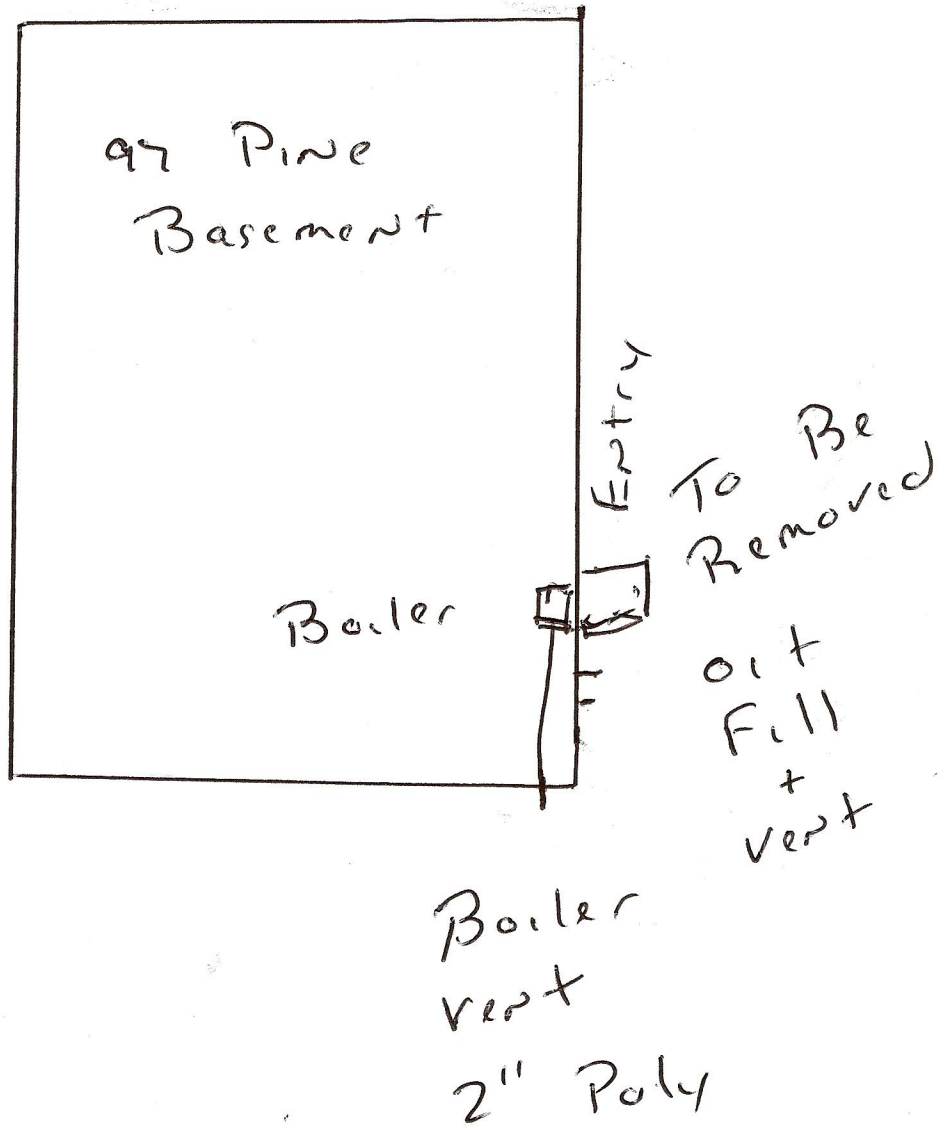 97 Pine
Basement
Entry
To Be
Removed
Boiler
oil
Fill
+
vent
Boiler
vent
2" Poly